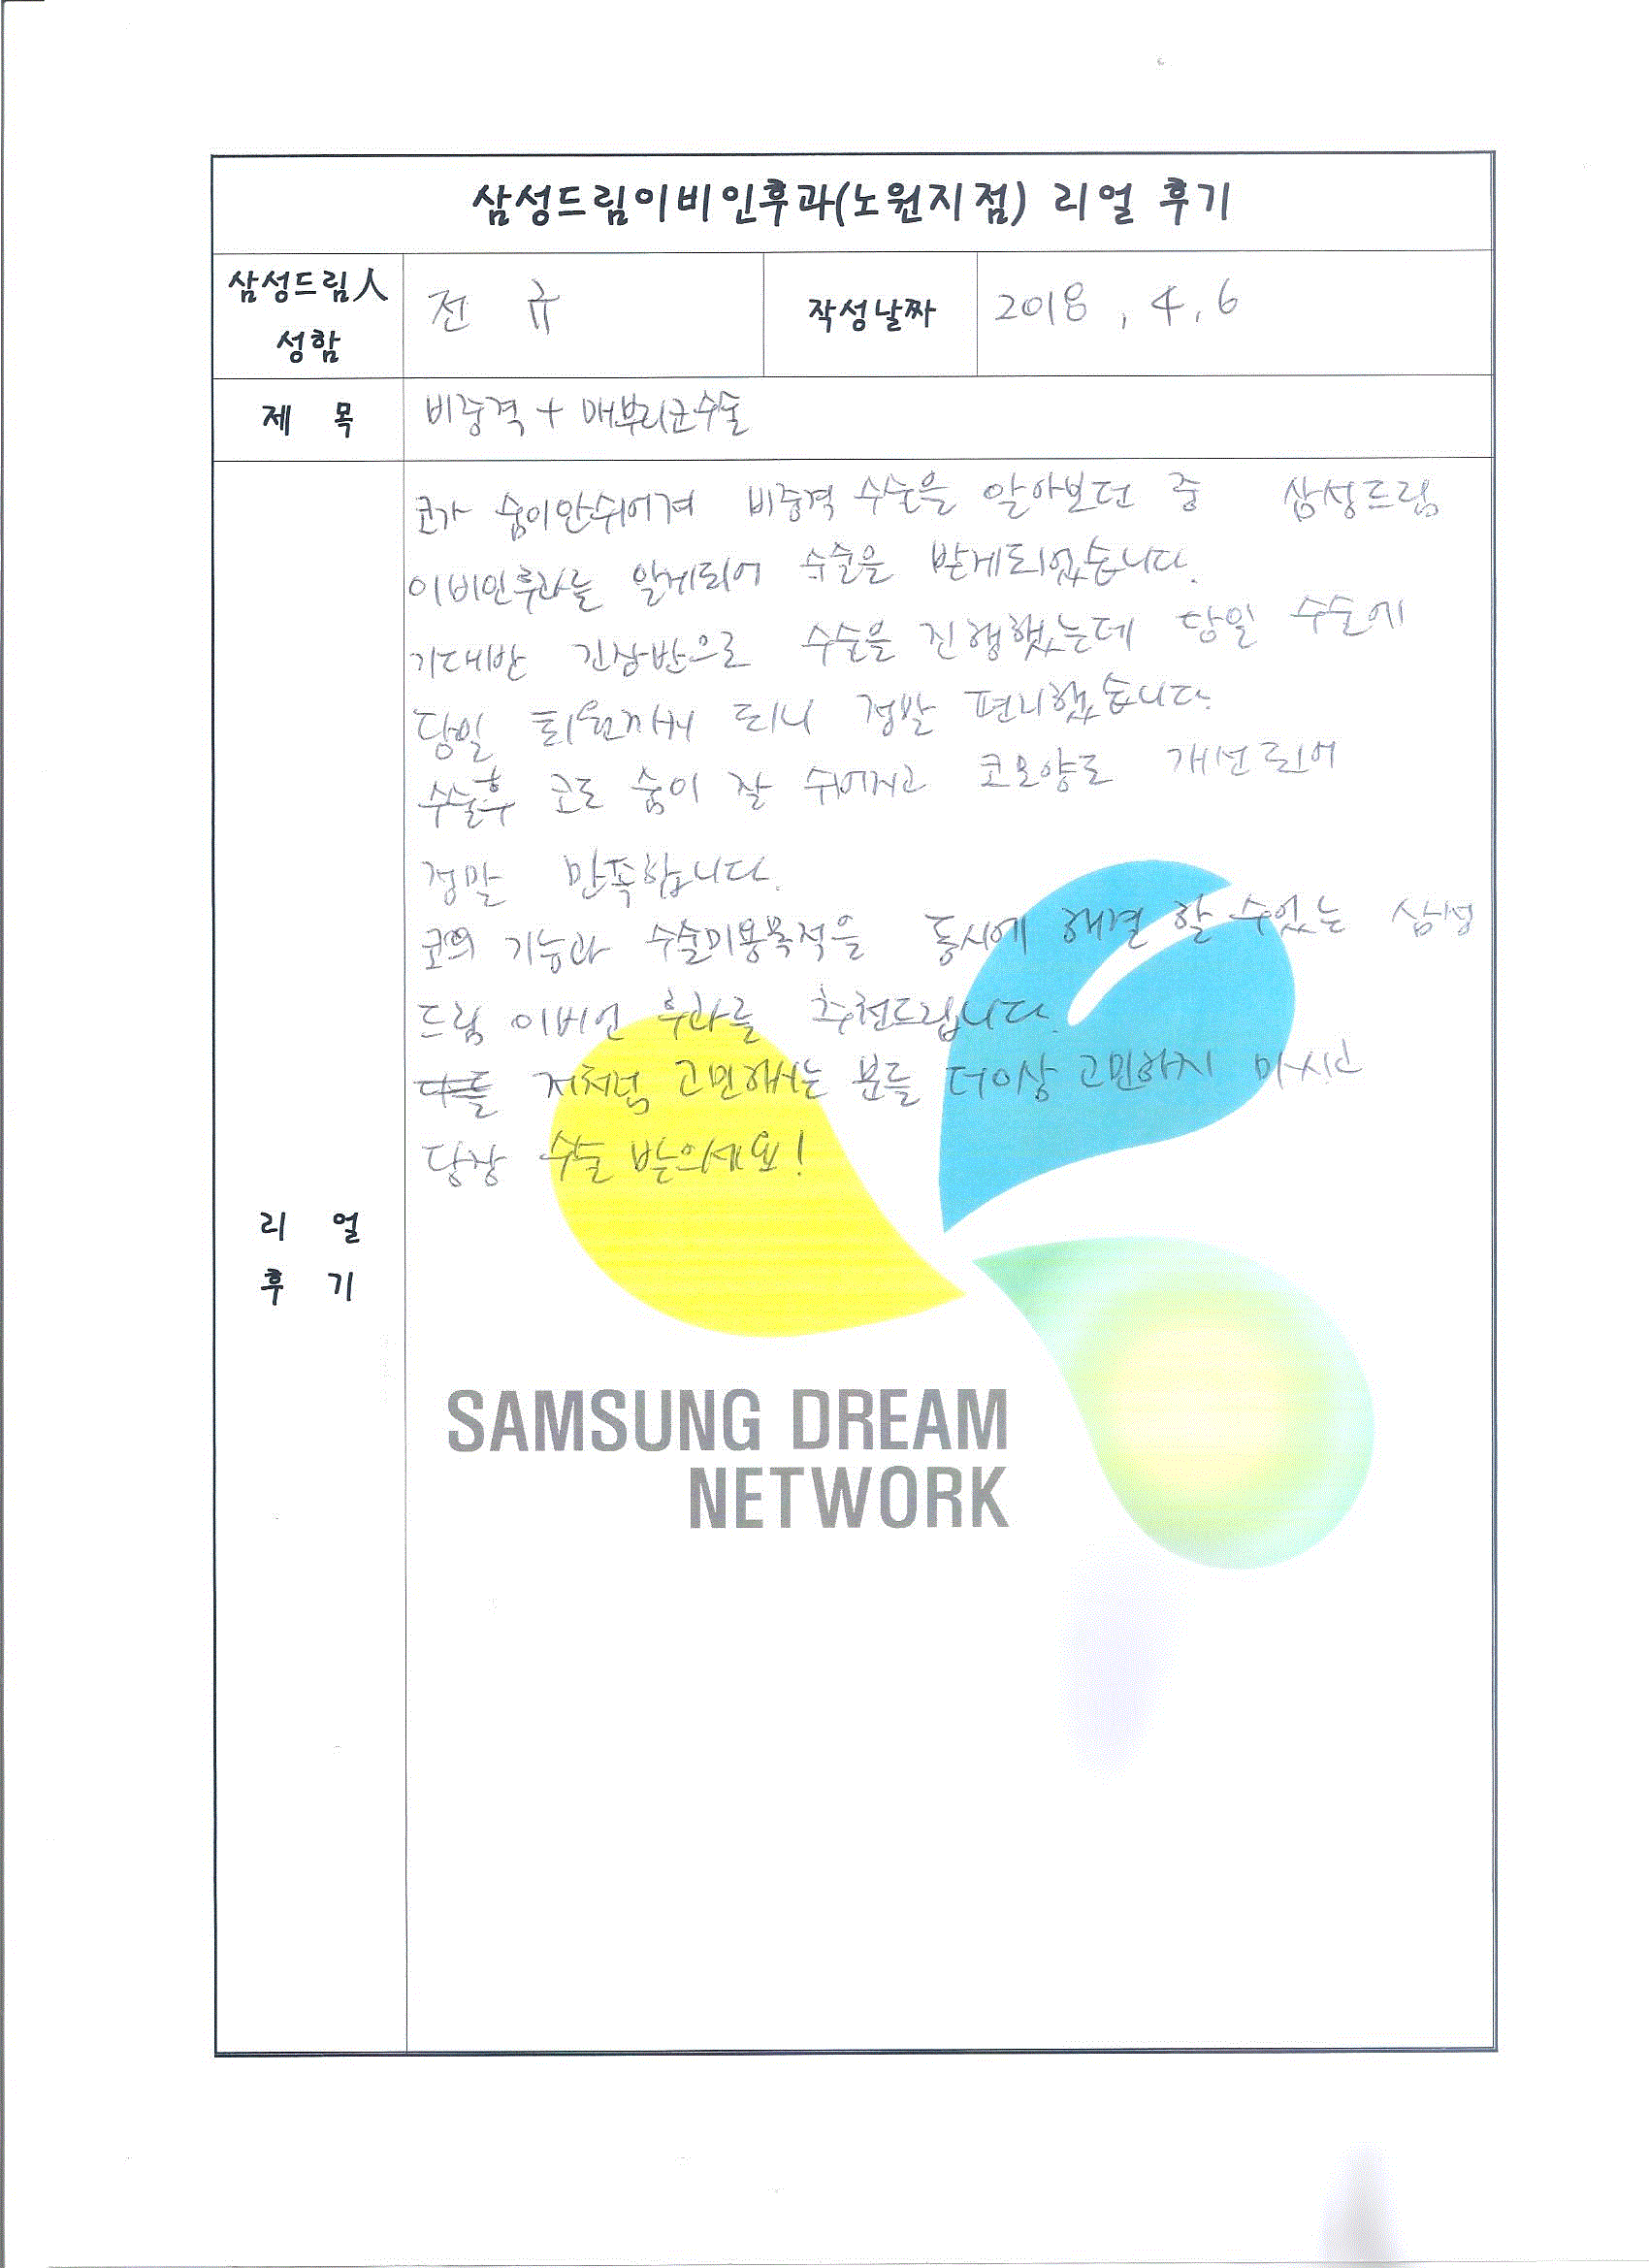 삼성드림이비인후과(노원지점) 리얼 후기
삼성드림人
성함
전 규
작성날짜
2018, 4, 6
제 목
비중격 + 매부리코수술
코가 숨이안쉬어져 비중격 수술을 알아보던 중 삼성드림
이비인후과를 알게되어 수술을 받게되었습니다.
기대반 긴장반으로 수술을 진행했는데 당일 수술에
당일 퇴원까지 되니 정말 편리했습니다.
수술후 코로 숨이 잘 쉬어지고 코모양도 개선되어
정말 만족합니다.
코의 기능과 수술미용목적을 동시에 해결 할 수있는 삼성
드림 이비인 후과를 추천드립니다.
저처럼 고민하시는 분들 더이상 고민하지 마시고
당장 수술 받으세요!
리 얼
후 기
SAMSUNG DREAM
NETWORK